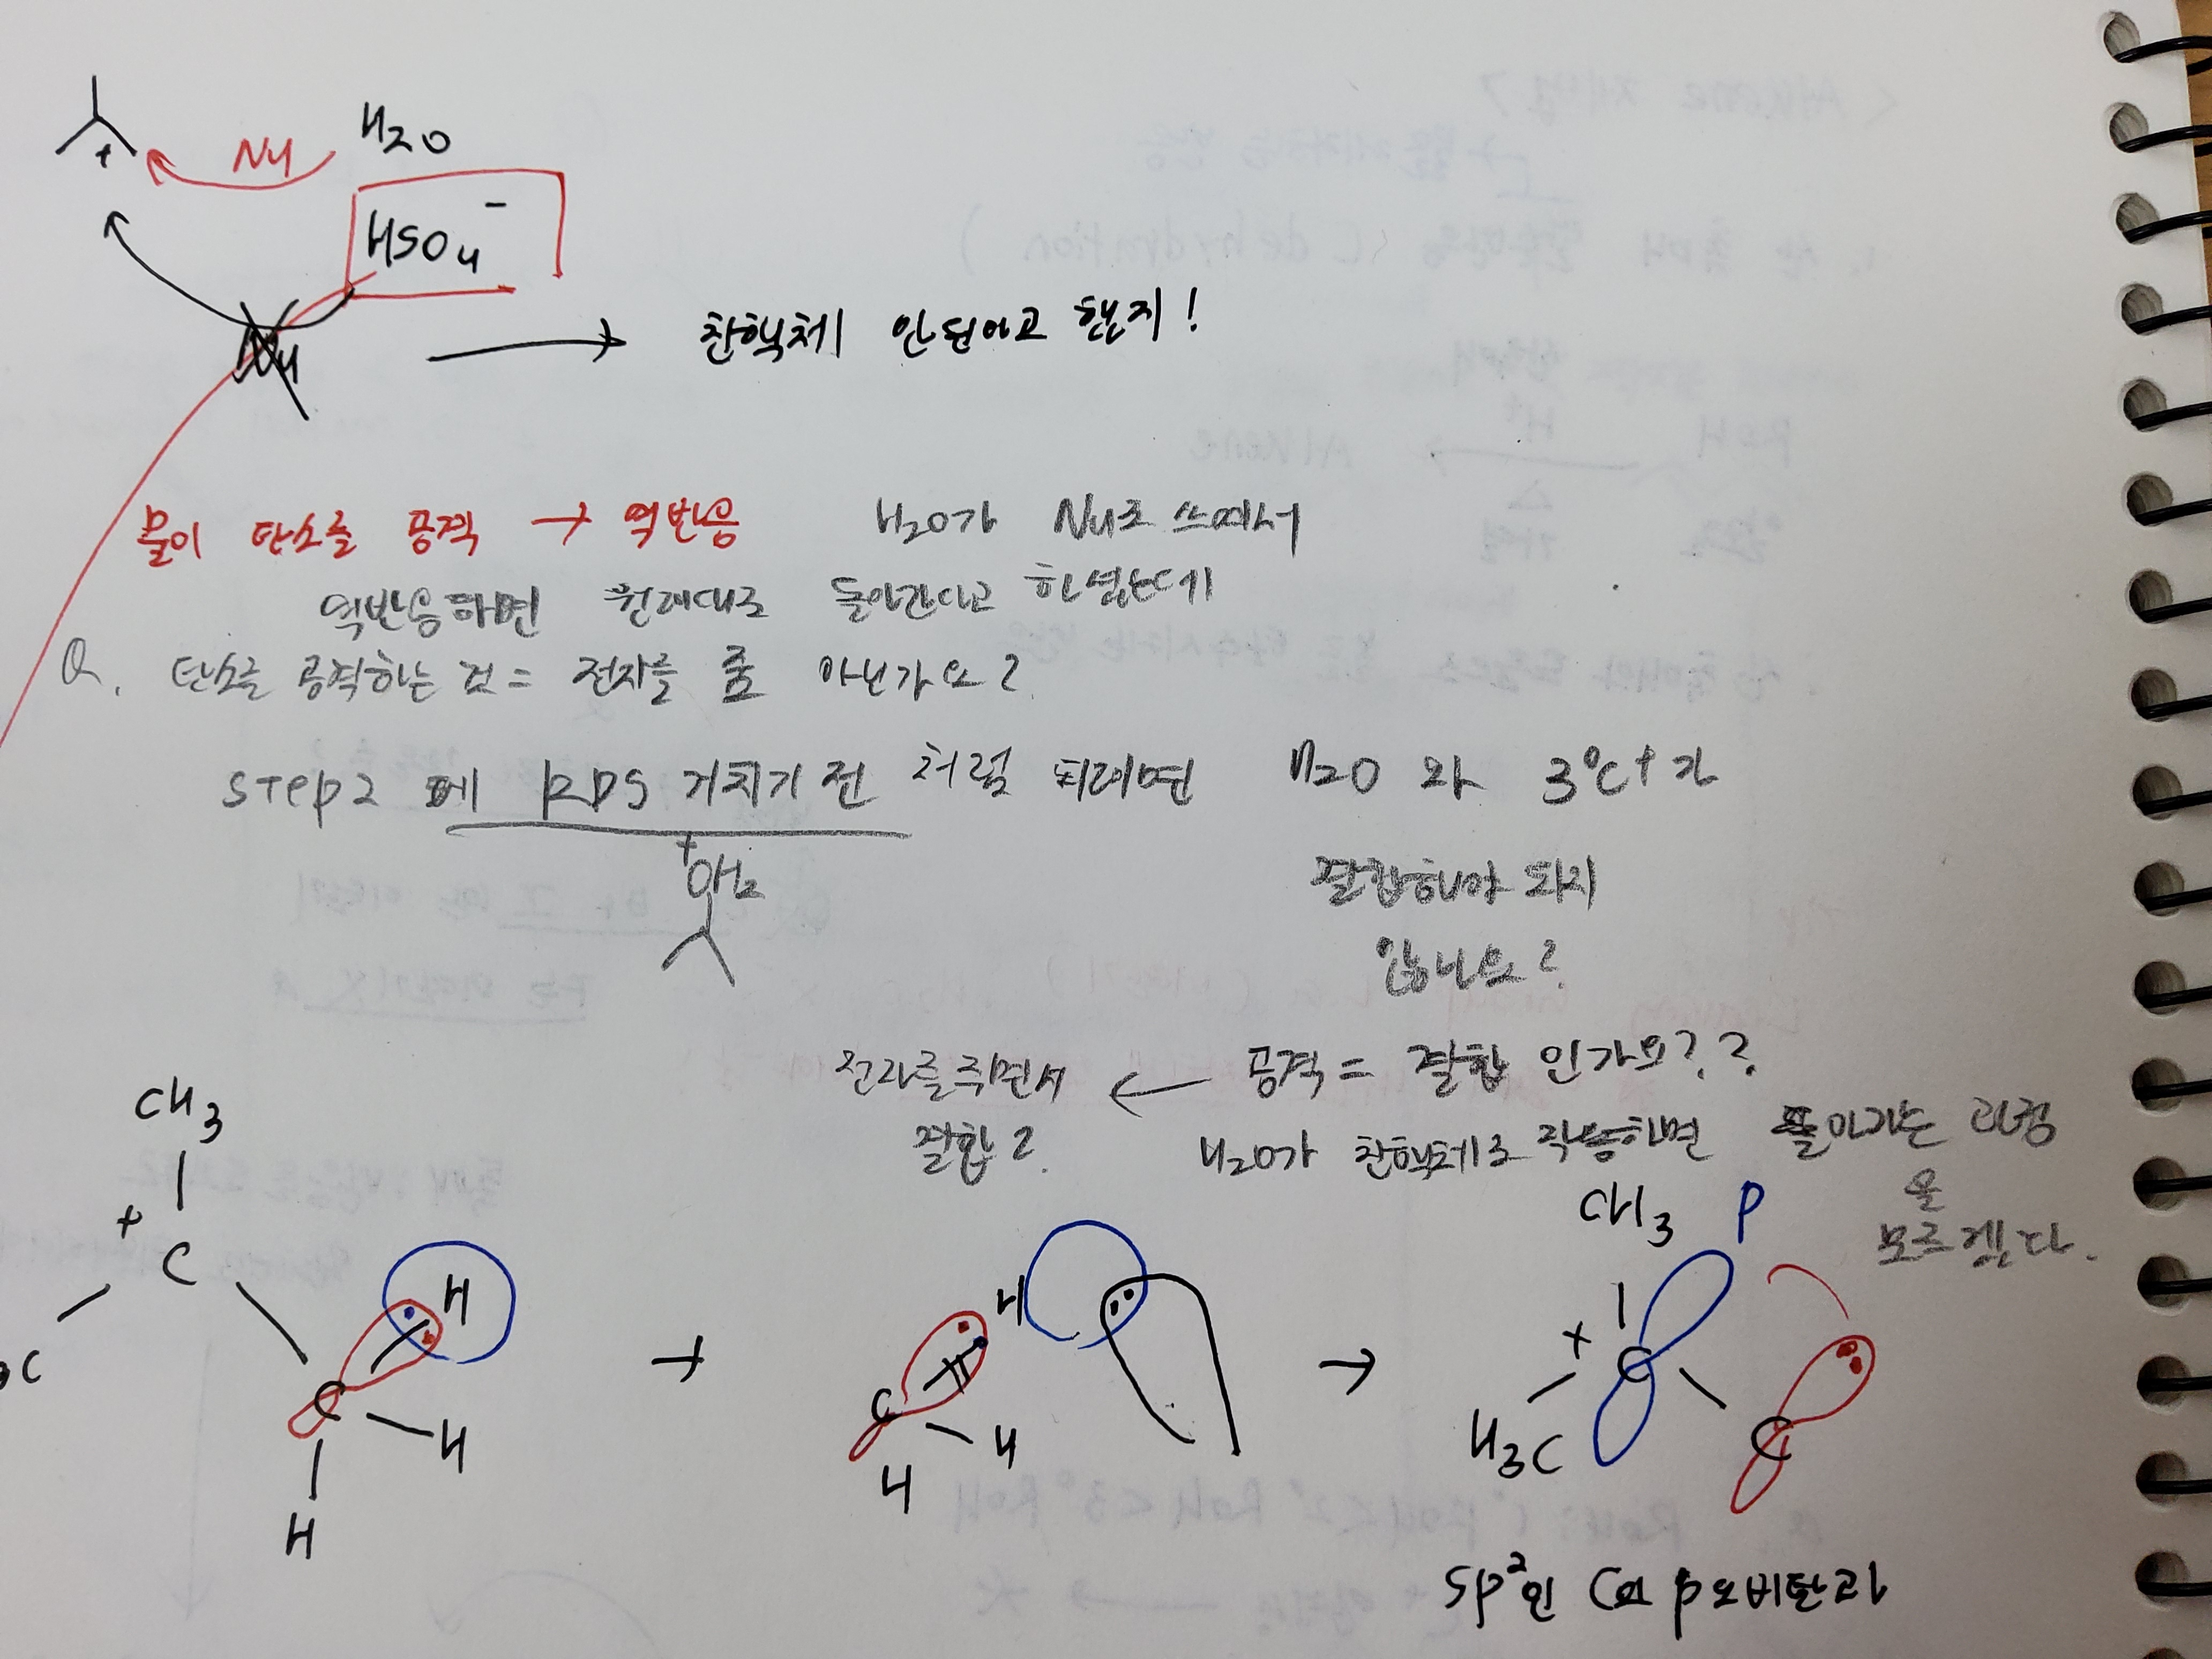 H2O
Nu
HSO4⁻
Nu
친핵체 안된다고 했지!
물이 탄소를 공격 → 역반응 H2O가 Nu로 쓰여서
역반응하면 원래대로 돌아간다고 하셨는데
Q. 탄소를 공격하는 것 = 전자를 줌 아닌가요?
step2 에 RDS 거치기 전 처럼 되려면 H2O 와 3°C+가
+OH2
결합해야 되지
않나요?
전자를주면서 ← 공격 = 결합 인가요??
결합?
H2O가 친핵체로 작용하면 돌아가는 과정
을
모르겠다.
CH3
+
C
3C
C
H
H
H
→
C
H
H
H
→
CH3
P
+
C
H3C
C
sp²인 C의 p오비탈과